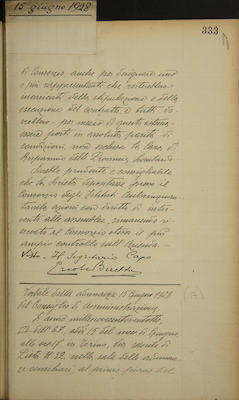 15 giugno 1928
333
di Consorzio, anche per designare uno
o più rappresentanti che restino
incaricati della stipulazione e della
esecuzione del contratto, e tutti do-
vrebbero per mezzo di questi
essere posti in assoluta parità di
condizioni, non esclusa la Cassa di
Risparmio delle Provincie Lombarde.
Sarebbe prudente e consigliabile
che la Società depositasse presso il
Consorzio degli Istituti
azioni con diritto di inter-
vento alle assemblee, rimanendo ri-
servato al Consorzio stesso il più
ampio controllo sull'Azienda.
Visto. Il Segretario Capo
Verbale della adunanza 15 Giugno 1928
del Consiglio di Amministrazione.
L'anno millenovecentoventotto,
addì 15 del mese di Giugno
alle ore 17, in Torino,
nella sala delle adunanze
consiliari, al primo piano del